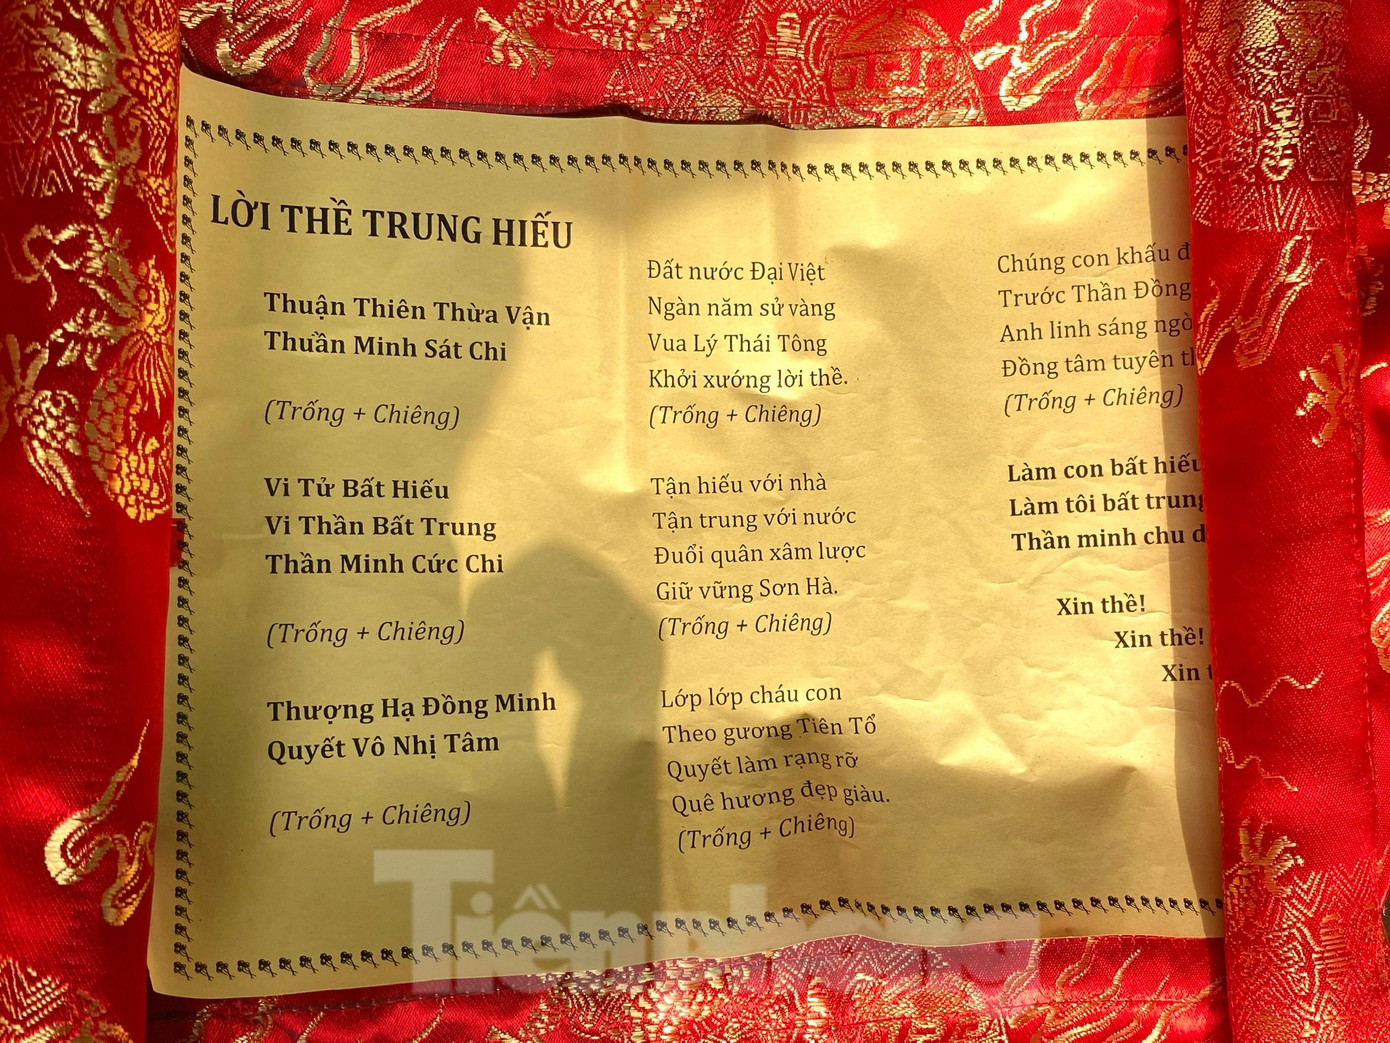 LỜI THỀ TRUNG HIẾU
Thuận Thiên Thừa Vận
Thuần Minh Sát Chi
(Trống + Chiêng)
Vi Tử Bất Hiếu
Vi Thần Bất Trung
Thần Minh Cức Chi
(Trống + Chiêng)
Thượng Hạ Đồng Minh
Quyết Vô Nhị Tâm
(Trống + Chiêng)
Đất nước Đại Việt
Ngàn năm sử vàng
Vua Lý Thái Tông
Khởi xướng lời thề.
(Trống + Chiêng)
Tận hiếu với nhà
Tận trung với nước
Đuổi quân xâm lược
Giữ vững Sơn Hà.
(Trống + Chiêng)
Lớp lớp cháu con
Theo gương Tiên Tổ
Quyết làm rạng rỡ
Quê hương đẹp giàu.
(Trống + Chiêng)
Chúng con khấu
Trước Thần Đồng
Anh linh sáng
Đồng tâm tuyên
(Trống + Chiêng)
Làm con bất hiếu
Làm tôi bất trung
Thần minh chu
Xin thề!
Xin thề!
Xin
Tiền Phong